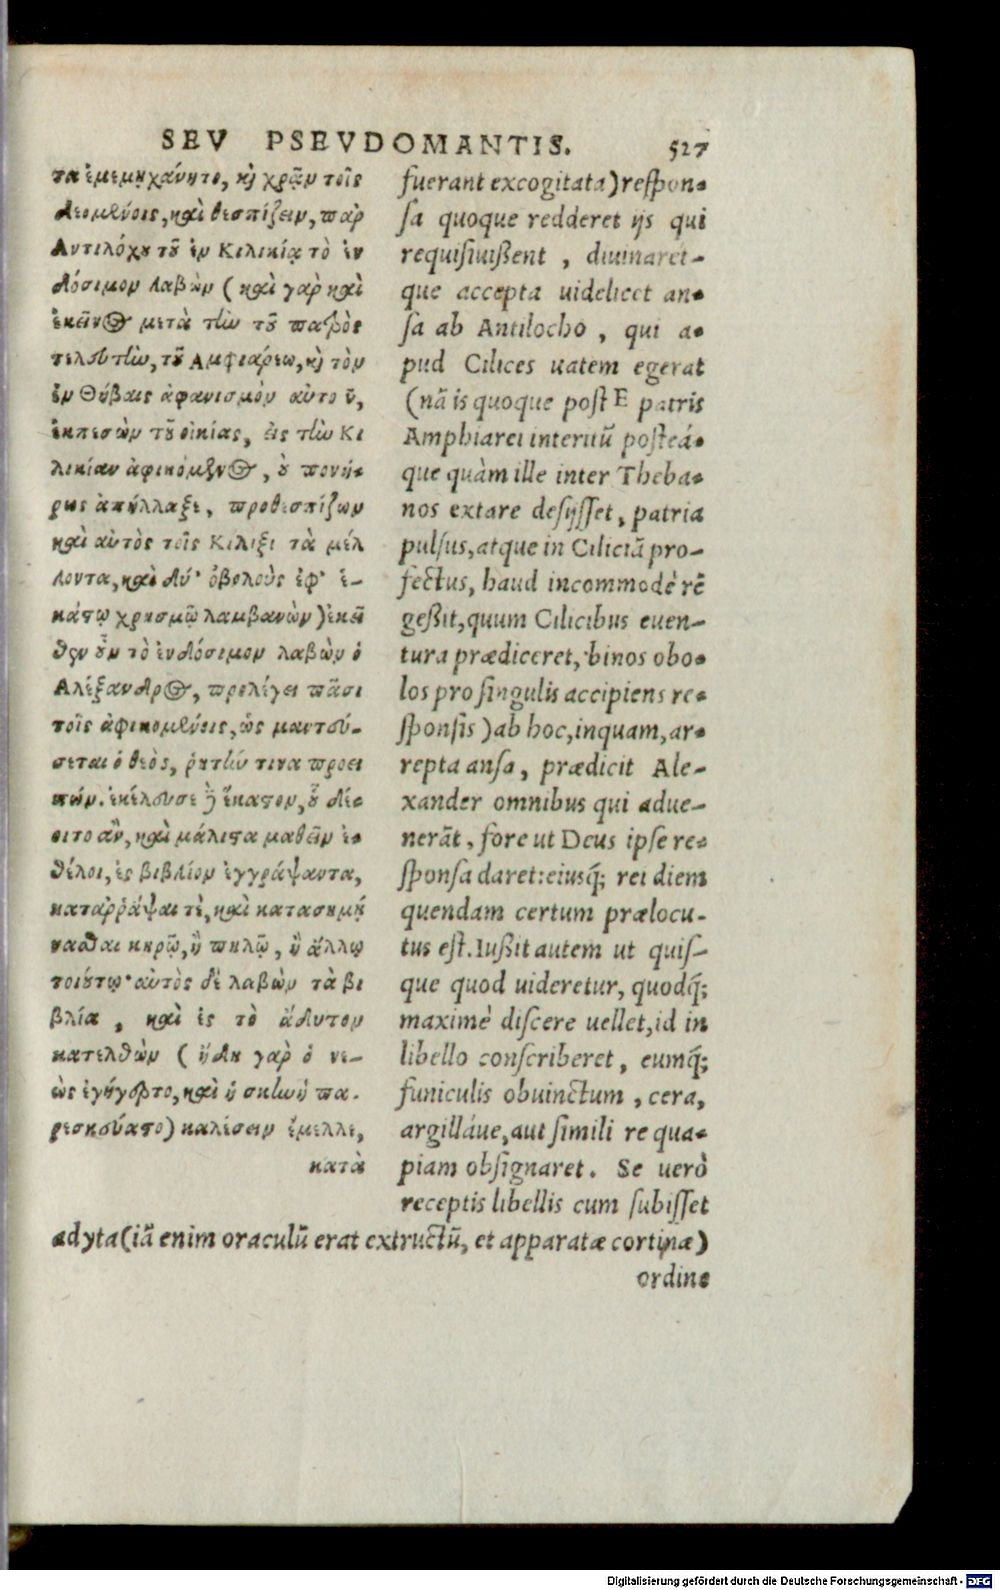 SEV PSEVDOMANTIS. 527
τα ἐμεμηχάνητο, κ̀ χρᾷν τοῖς
δεομένοις, καὶ θεσπίζειν, παρ
Αντιλόχου τοῦ ἐν Κιλικίᾳ τὸ ἐν
δόσιμον λαβὼν (καὶ γὰρ καὶ
ἐκεῖνος μετὰ τὴν τοῦ πατρὸς
τελευτὴν, τοῦ Αμφιάρεω, κ̀ τὸν
ἐν Θήβαις ἀφανισμὸν αὐτοῦ,
ἐκπεσὼν τοῦ οἰκίας, εἰς τὴν Κι
λικίαν ἀφικόμενος, οὐ πονή-
ρως ἀπήλλαξε, προθεσπίζων
καὶ αὐτὸς τοῖς Κίλιξι τὰ μέλ
λοντα, καὶ δύ' ὀβολοὺς ἐφ' ἑ-
κάστῳ χρησμῷ λαμβανὼν) ἐκεῖ
θεν οὖν τὸ ἐνδόσιμον λαβὼν ὁ
Αλέξανδρος, προλέγει πᾶσι
τοῖς ἀφικομένοις, ὡς μαντεύ-
σεται ὁ θεὸς, ῥητήν τινα προει
πών. ἐκέλευσε δὲ ἕκαστον, οὗ δέο
οιτο ἂν, καὶ μάλιστα μαθεῖν ἐ-
θέλοι, ἐς βιβλίον ἐγγράψαντα,
καταῤῥάψαι τὲ, καὶ κατασημή
νασθαι κηρῷ, ἢ πηλῷ, ἢ ἄλλῳ
τοιούτῳ· αὐτὸς δὲ λαβὼν τὰ βι
βλία, καὶ ἐς τὸ ἄδυτον
κατελθὼν (ἤδη γαρ ὁ νε-
ὼς ἐγήγερτο, καὶ ἡ σκηνὴ πα-
ρεσκεύαστο) καλέσειν ἔμελλε,
κατὰ
fuerant excogitata) respon-
sa quoque redderet ijs qui
requisiuißent, diuinaret-
que accepta uidelicet an-
sa ab Antilocho, qui a-
pud Cilices uatem egerat
(nã is quoque post E patris
Amphiarei interitũ posteá-
que quàm ille inter Theba-
nos extare desijsset, patria
pulsus, atque in Ciliciã pro-
fectus, haud incommodè rẽ
geßit, quum Cilicibus euen-
tura prædiceret, binos obo-
los pro singulis accipiens re-
sponsis) ab hoc, inquam, ar-
repta ansa, prædicit Ale-
xander omnibus qui adue-
nerãt, fore ut Deus ipse re-
sponsa daret: eiusq́; rei diem
quendam certum prælocu-
tus est. Iußit autem ut quis-
que quod uideretur, quodq́;
maximè discere uellet, id in
libello conscriberet, eumq́;
funiculis obuinctum, cera,
argilláue, aut simili re qua-
piam obsignaret. Se uerò
receptis libellis cum subisset
adyta (iã enim oraculũ erat extructũ, et apparatæ cortinæ)
ordine
Digitalisierung gefördert durch die Deutsche Forschungsgemeinschaft - DFG